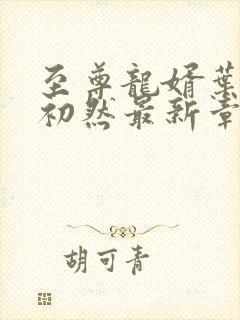 至尊龍婿葉
初然最新章
胡可青